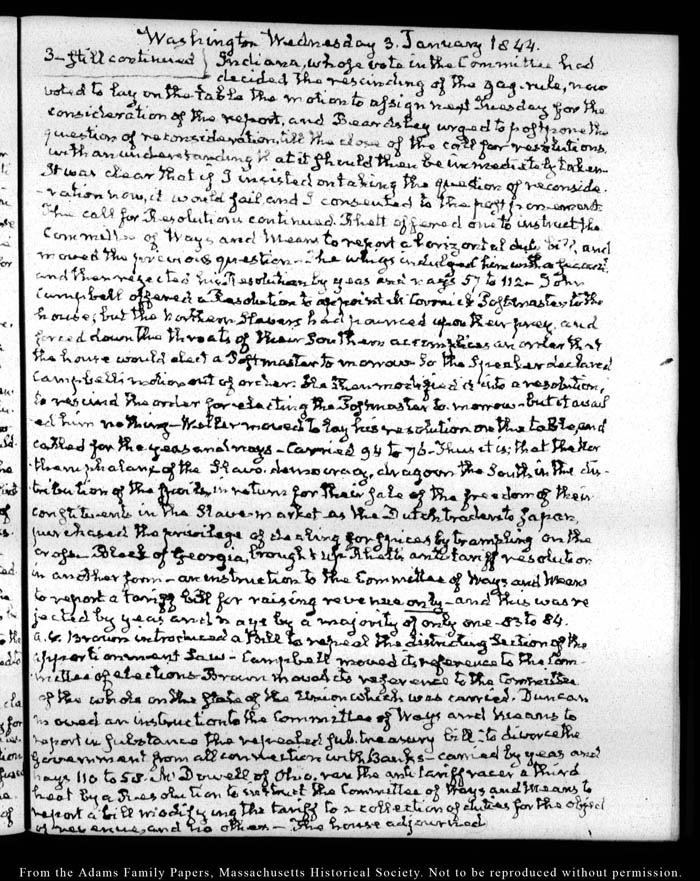 Washington Wednesday 3. January 1844.
3 – still continued } Indiana, whose vote in the Committee had
decided the rescinding of the gag-rule, now
voted to lay on the table the motion to assign next Tuesday for the
consideration of the report, and Beardsley urged to postpone the
question of reconsideration, till the close of the call for resolutions,
with an understanding that it should then be immediately taken.
It was clear that if I insisted on taking the question of reconside-
-ration now, it would fail and I consented to the postponement
The call for Resolutions continued. Rhett offered one to instruct the
Committee of Ways and Means to report a horizontal duty bill, and
moved the previous question – The whigs indulged him with a second
and then rejected his Resolution by yeas and nays 57 to 112 – John
Campbell offered a Resolution to appoint McCormick Postmaster to the
house; but the Northern Slavers had pounced upon their prey, and
forced down the throats of their Southern accomplices an order that
the house would elect a Postmaster to morrow. So the Speaker declared
Campbell's motion out of order. He then modified it into a resolution,
to rescind the order for electing the Postmaster to morrow – But it avail
ed him nothing – Weller moved to lay his resolution on the table, and
called for the yeas and nays – Carried 94 to 76 – Thus it is; that the Nor
thern phalanx of the Slavo-democracy, dragoon the South in the dis-
tribution of the spoils, in return for their sale of the freedom of their
constituents in the Slave-market as the Dutch traders to Japan,
purchased the privilege of dealing for spices by trampling on the
cross. Black of Georgia, brought up Rhett's anti tariff resolution
in another form – an instruction to the Committee of Ways and Means
to report a tariff bill for raising revenue only – and this was re
jected by yeas and nays by a majority of only one – 83 to 84.
A. V. Brown introduced a Bill to repeal the districting Section of the
apportionment Law – Campbell moved its reference to the Com-
mittee of elections. Brown moved its reference to the Committee
of the whole on the state of the Union which was carried. Duncan
moved an instruction to the Committee of Ways and Means to
report in substance the repealed sub-treasury bill – to divorce the
Government from all connection with Banks – carried by yeas and
nays 110 to 58. McDowell of Ohio, ran the anti tariff racer a third
heat by a Resolution to instruct the Committee of Ways and Means to
report a bill modifying the tariff to a collection of duties for the object
of revenue, and no others – The house adjourned
From the Adams Family Papers, Massachusetts Historical Society. Not to be reproduced without permission.